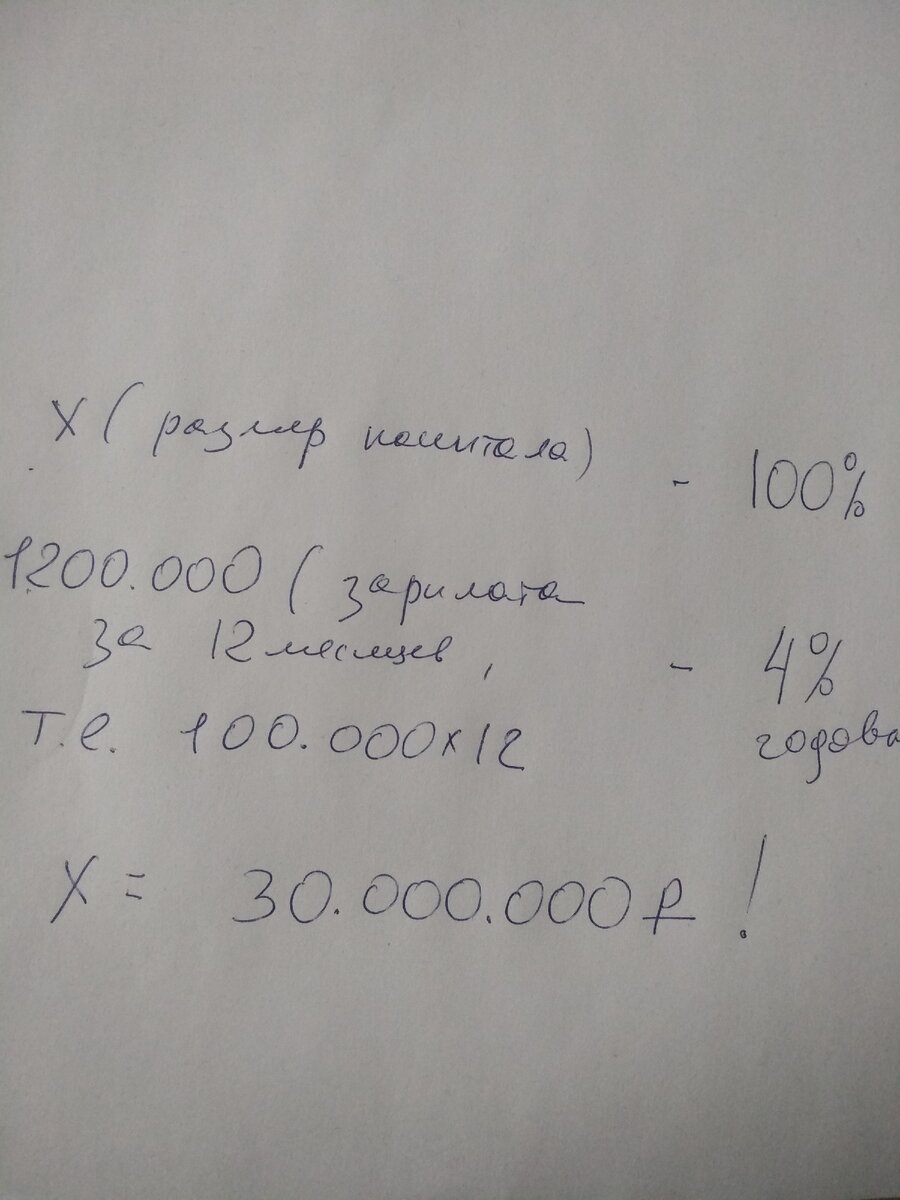 X ( размер капитала) - 100%
1200.000 ( зарплата
за 12 месяцев, - 4%
т.е. 100.000x12 годова
X = 30.000.000₽ !